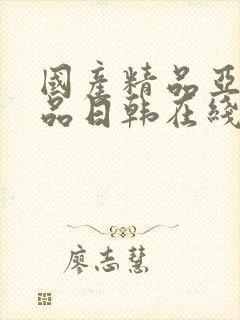 國產精品亞
品日韩在綫
廖志慧